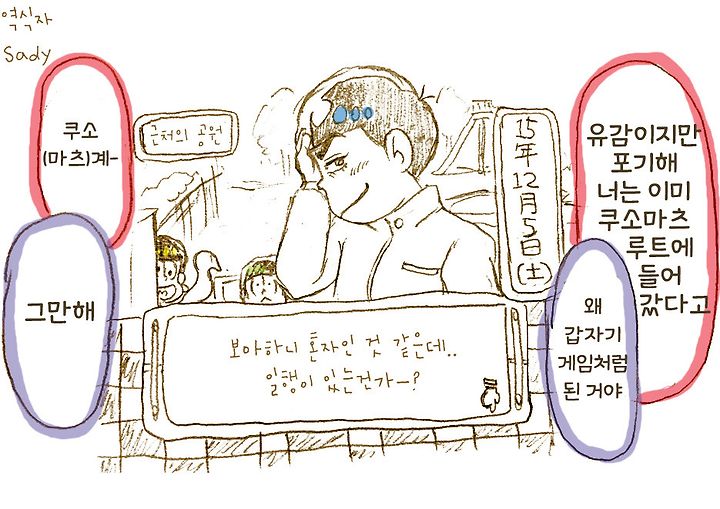 역식자
Sady
유감이지만
포기해
너는 이미
쿠소마츠
루트에
들어
갔다고
왜
갑자기
게임처럼
된 거야
15年12月5日(土)
근처의 공원
쿠소
(마츠)계-
그만해
보아하니 혼자인 것 같은데..
일행이 있는건가ー?